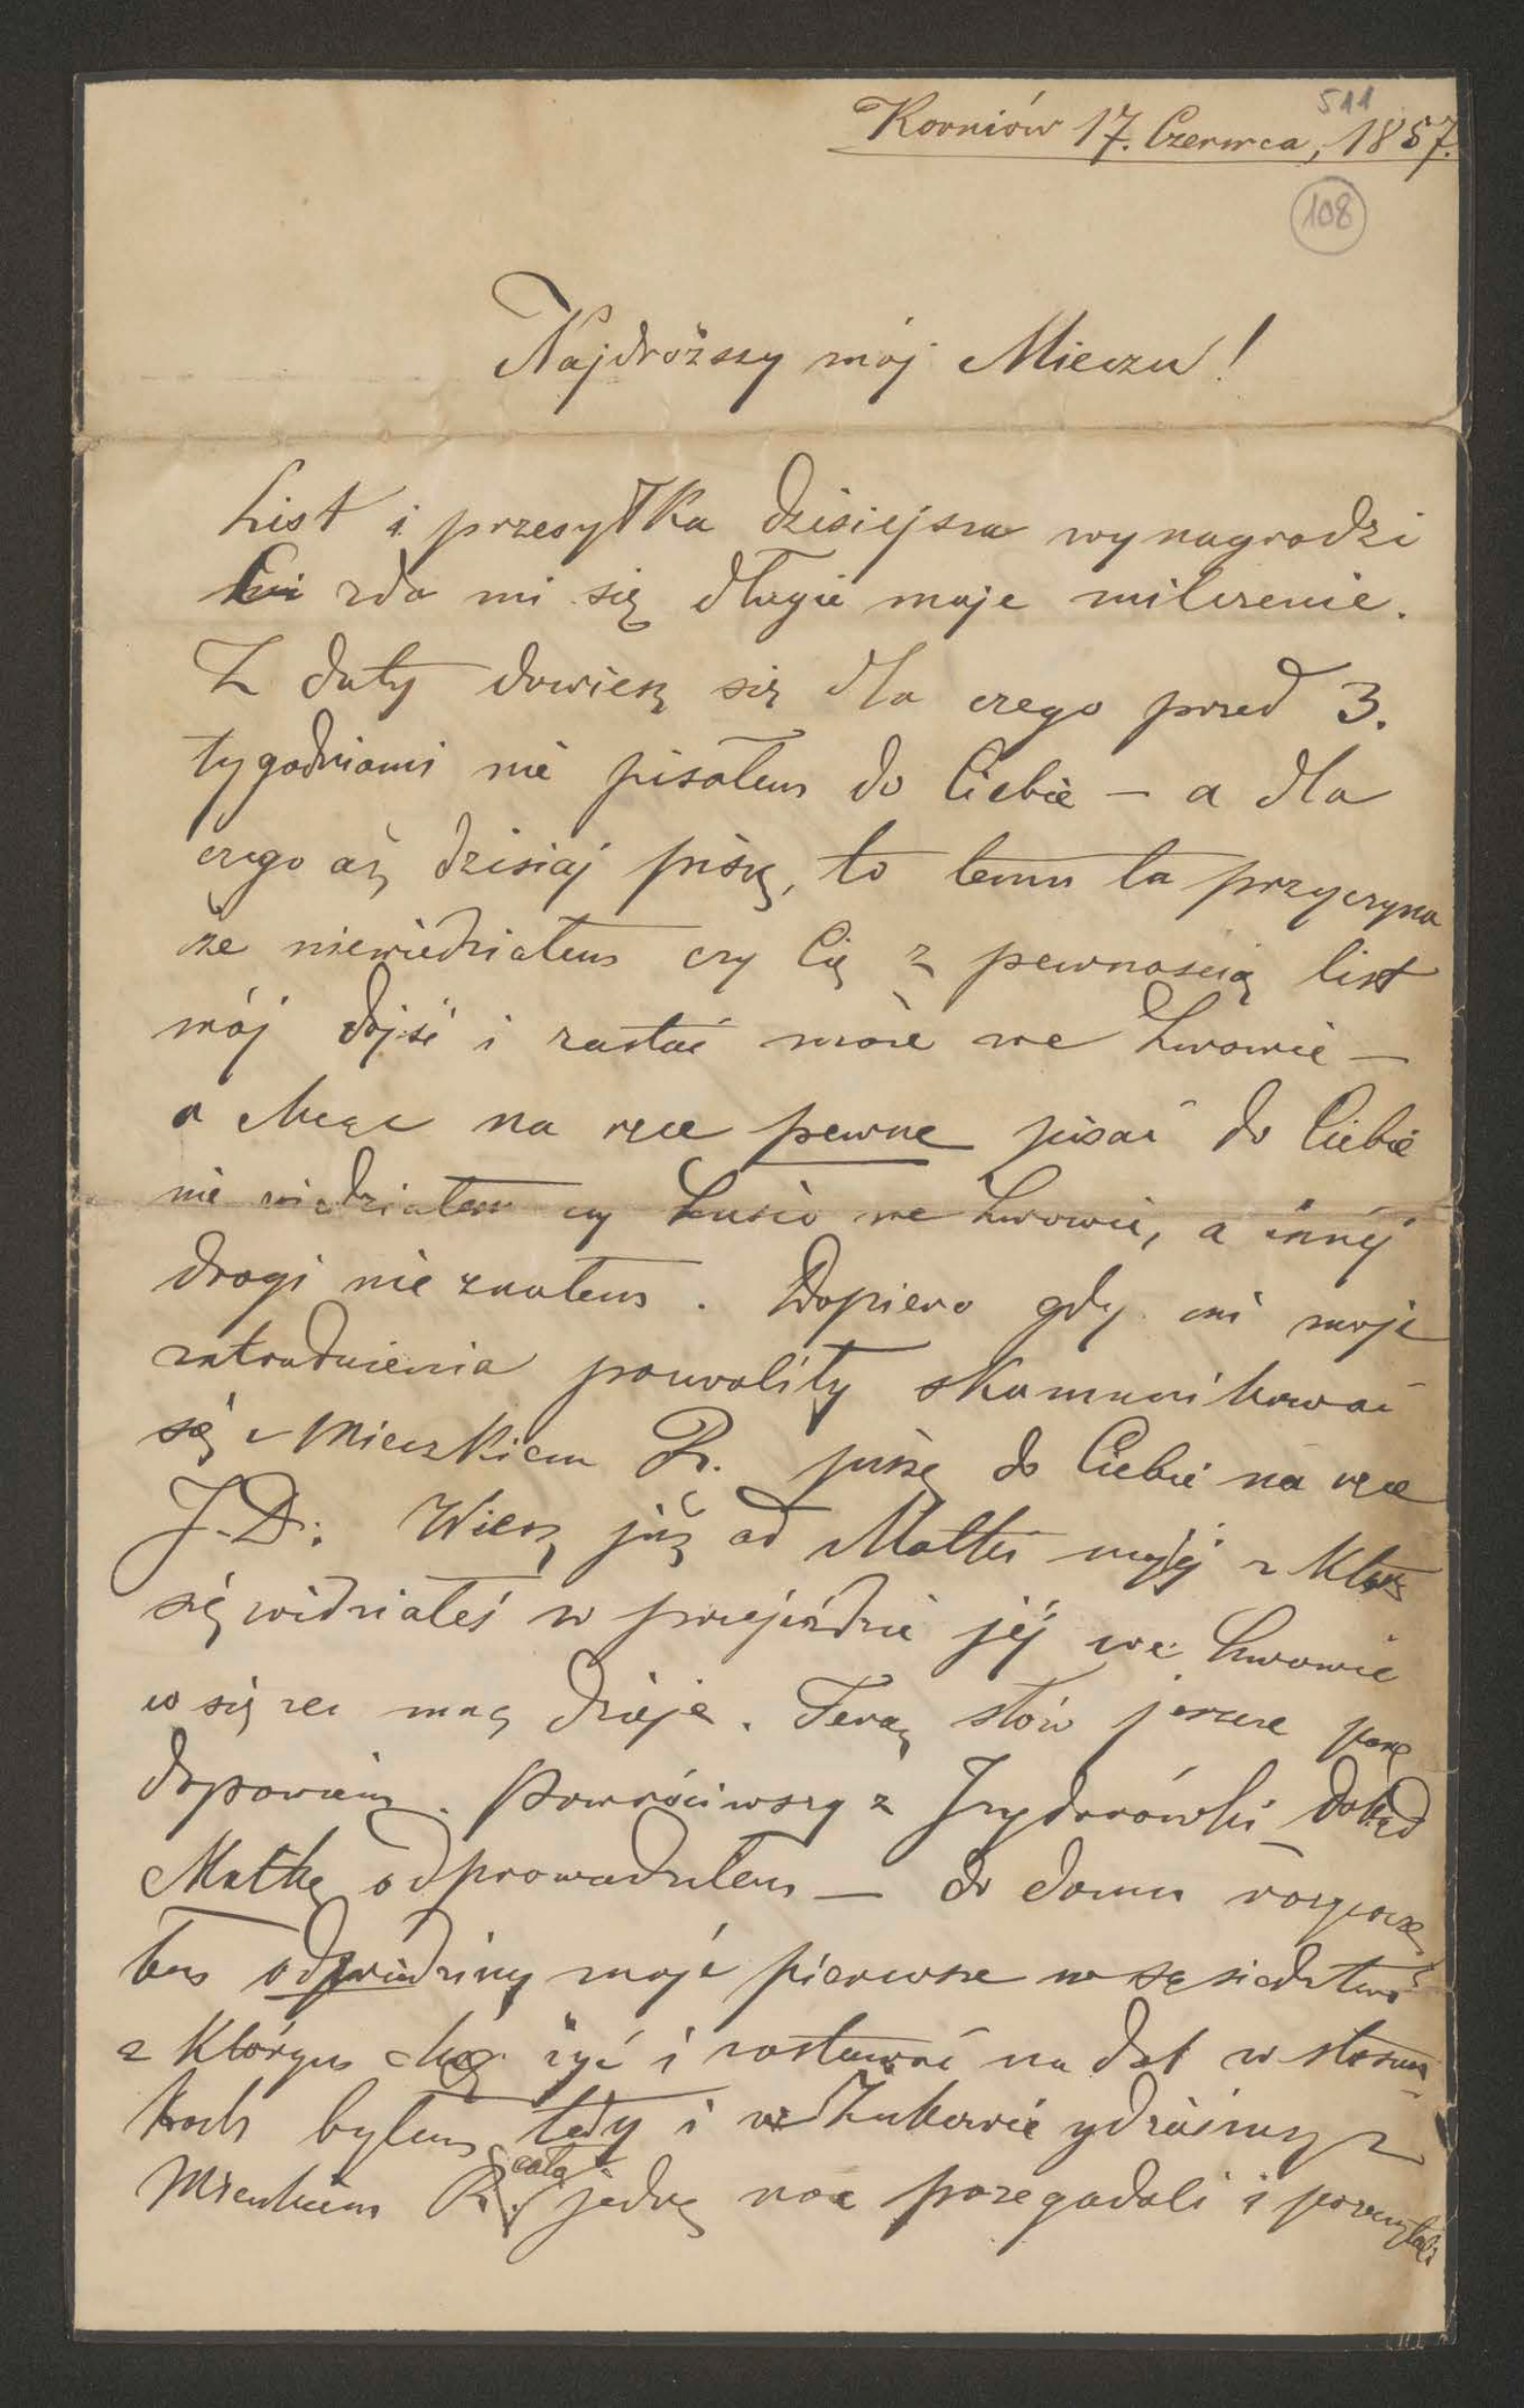 511
Korniów 17. Czerwca, 1857.
108
Najdroższy mój Mieczu!
List i przesyłka dzisiejsza wynagrodzi
Ci zda mi się długie moje milczenie.
Z daty dowiesz się dla czego przed 3.
tygodniami nie pisałem do Ciebie — a dla
czego aż dzisiaj piszę, to temu ta przyczyna
że niewiedziałem czy Cię z pewnością list
mój dojść i zastać może we Lwowie —
a chcąc na ręce pewne pisać do Ciebie
nie wiedziałem czy Lusio we Lwowie, a innéj
drogi nie znałem. Dopiero gdy mi moje
zatrudnienia pozwoliły skomunikować
się z Mieczkiem R. piszę do Ciebie na ręce
J. D. Wiesz już od Matki mojéj z którą
się widziałeś w przejeździe jéj we Lwowie
co się ze mną dzieje. Teraz słów jeszcze parę
dopowiem. Powróciwszy z Izydorówki dokąd
Matkę odprowadziłem — do domu rozpoczą
łem odwiedziny moje pierwsze w sąsiedztwie
z którym chcę żyć i zostawać na dal w stosun
kach byłem tedy i w Żukowie gdzieśmy z
Mieczkiem R. całą jedną noc przegadali i